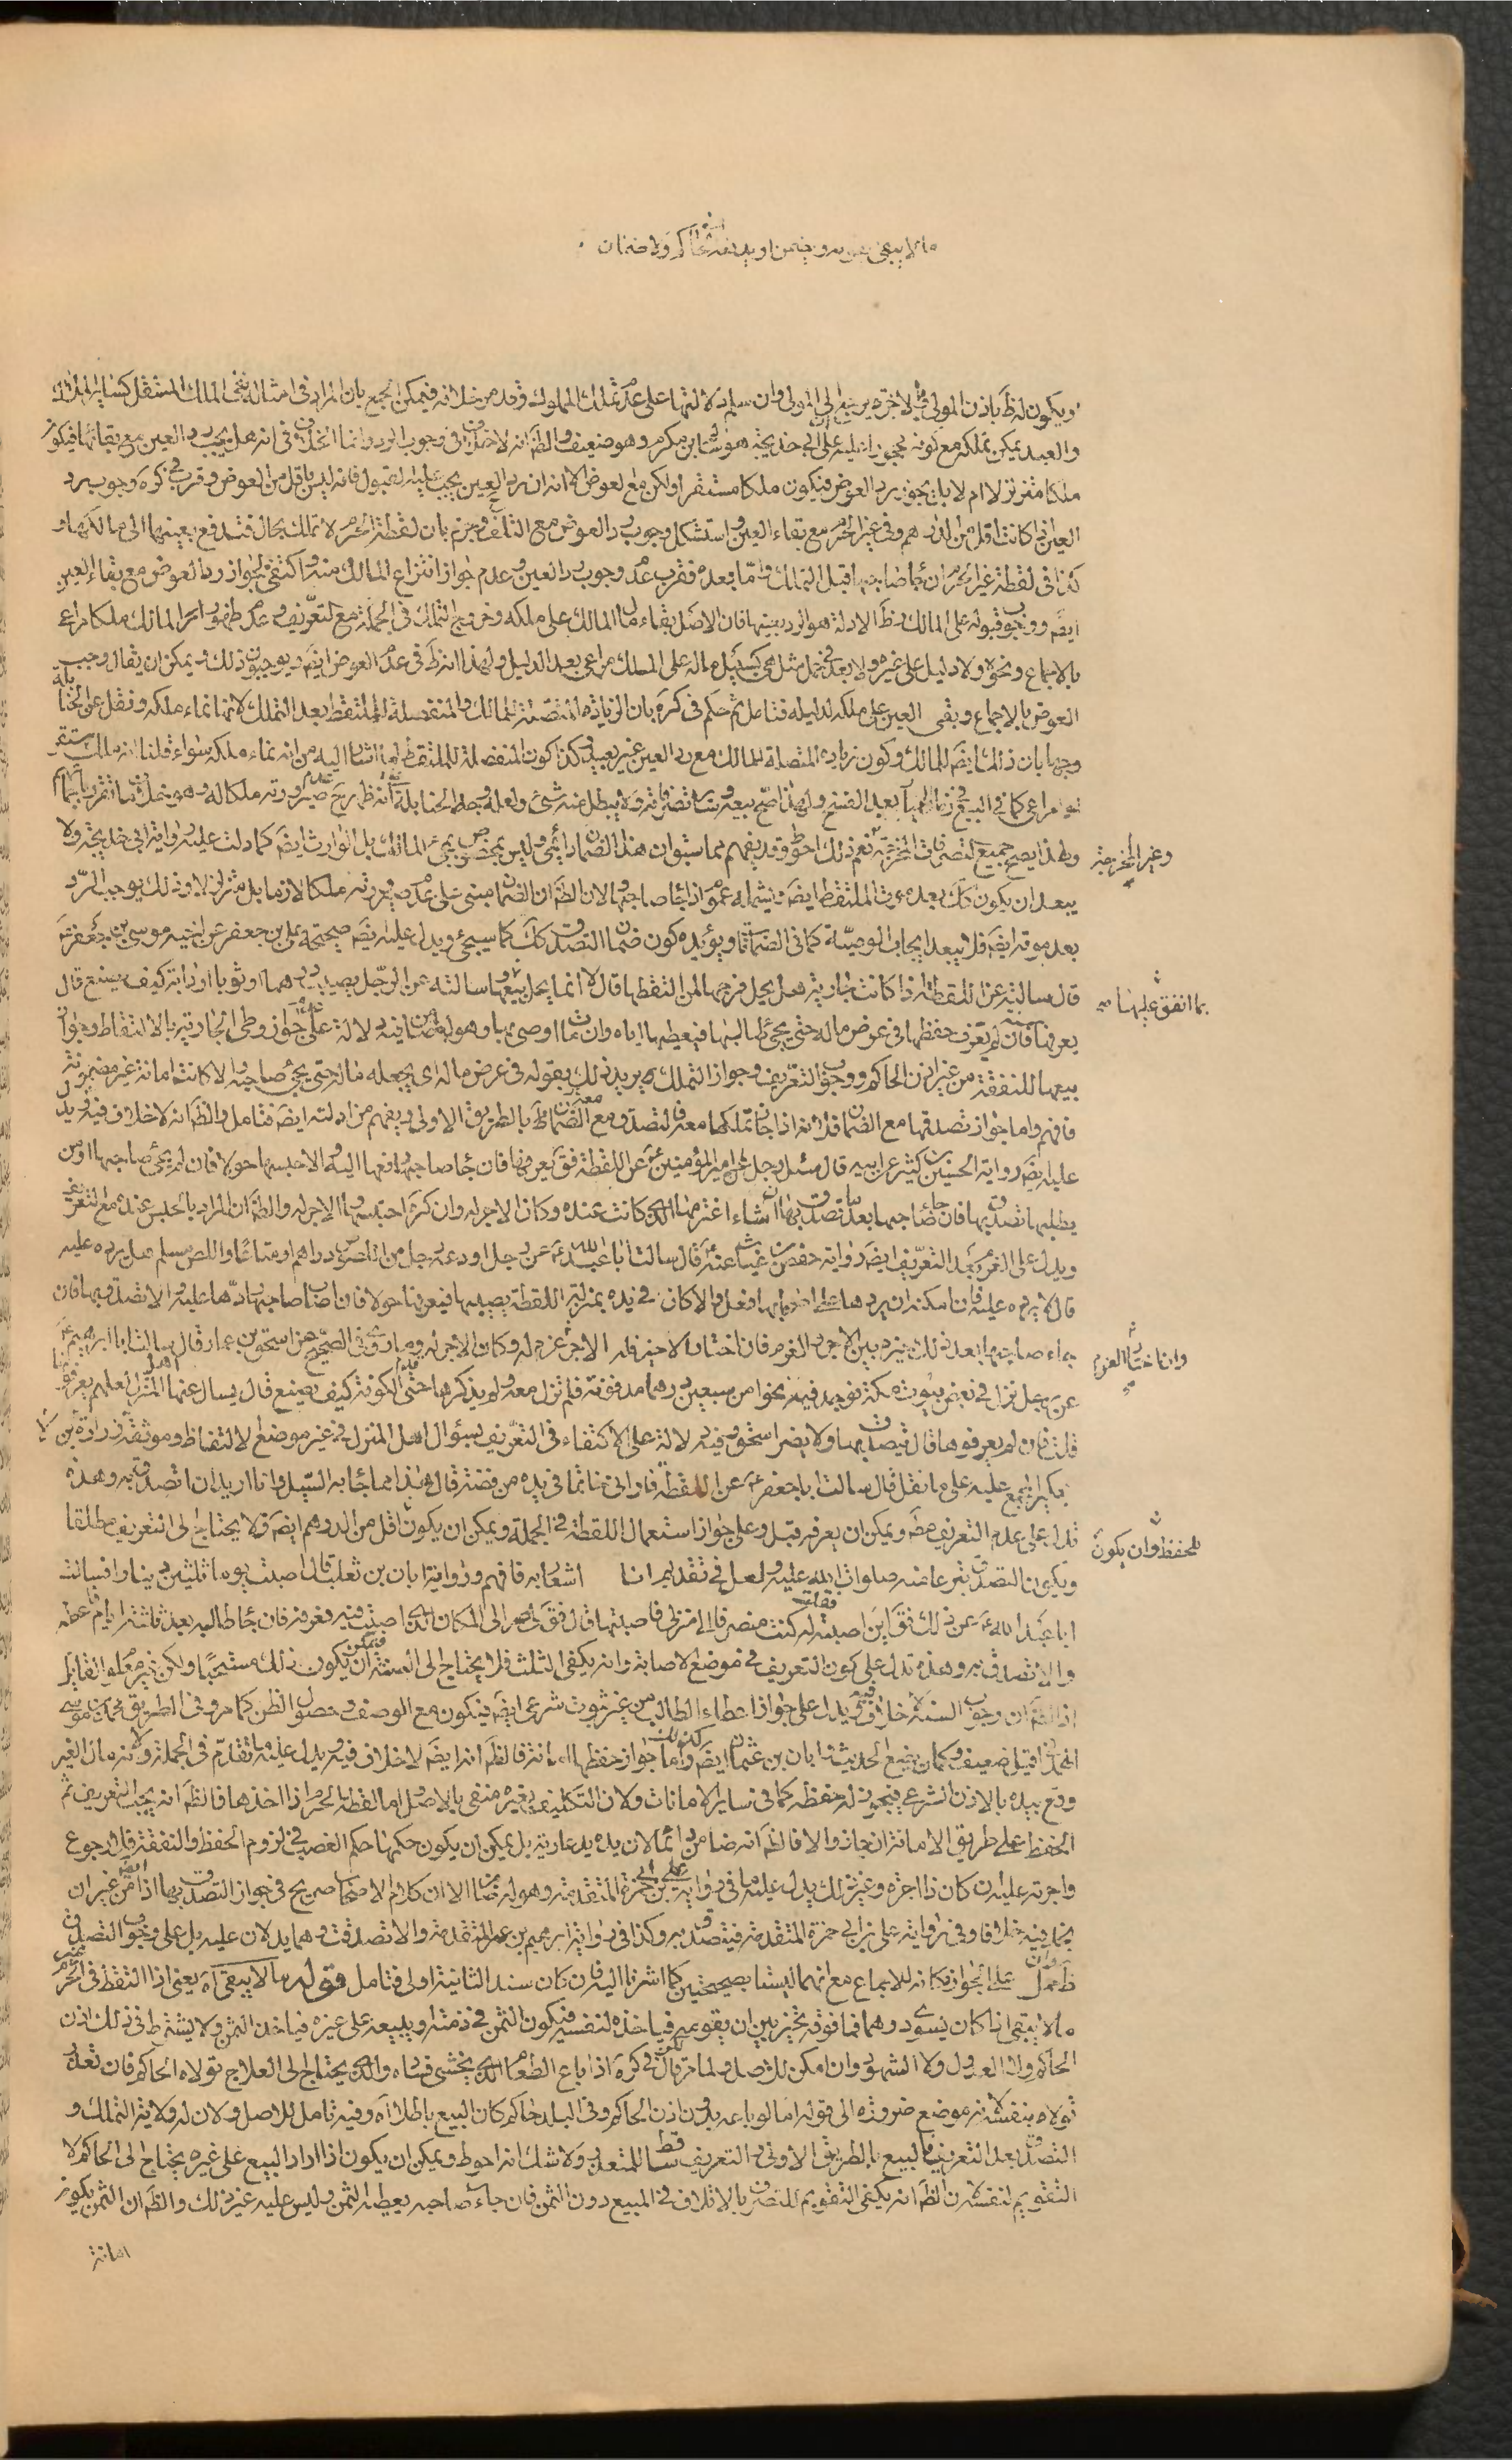 ما لا يبقى
ويكون لقظ باذن المولى
والعبد يمكن تملكه مع كونه
ملكا متزلزلا ام لا بل يجوز رد العوض فيكون ملكا مستقرا ولكن مع لعوض الا انه ان رد العين يجب عليه القبول فانه ليس باقل من العوض وقرب في كره وجوب رد
العين ان كانت اقل من الدرهم وفى غير الحرم مع بقاء العين واستشكل وجوب رد العوض مع التلف وجزم بان لقطة الحرم لا تملك بحال فتدفع بعينها الى مالكها و
كذا فى لقطة غير الحرم ان جاء صاحبها قبل التملك واما بعده فقرب عدم وجوب رد العين وعدم جواز انتزاع المالك منه واكتفى بجواز رد العوض مع بقاء العين
ايضَ ووجوب قبوله على المالك وظَ الادلة هو الرد بعينها فان الاصل بقاء مال المالك على ملكه وخروج التملك فى الجملة مع التعريف وعدم ظهور امر المالك ملكا مراعى
بالاجماع ونحوه ولا دليل على غيره ولا بعد فى حمل مثل هى كسبيل ماله على الملك مراعى بعد الدليل ولهذا
العوض بالاجماع وبقى العين على ملكه لدليله فتامل ثم حكم فى كره بان الزيادة المتصلة للمالك والمنفصلة للملتقط بعد التملك لانها نماء ملكه ونقل عن الحنابلة
وجها بان ذلك ايضَ للمالك وكون زيادة المتصلة للمالك مع رد العين غير بعيد وكذا كون المنفصلة للملتقط لما اشار اليه من انه نماء ملكه سواء قلنا انه ملك مستقر
او مراعى كما فى البيع فى زمان الخيار بعد الفسخ ولهذا صح بيعه وساير تصرفاته ولا يبطل عنه شئ ولعله وجه الحنابلة
ولهذا يصح جميع التصرفات المخرجة نعم ذلك احوط وقد يفهم مما سبق ان هذا الضمان دائمى وليس بمخصوص بمجئ المالك بل الوارث ايضَ كما دلت عليه رواية ابى خديجة ولا
وغير المخرجة
يبعد ان يكون كك بعد موت الملتقط ايضَ ويشمله عموم اذا جاء صاحبها لان الظَ ان الضمان مبنى على عدم صيرورته ملكا لازما بل متزلزلا وذلك يوجب الرد
بعد موته ايضَ فلا يبعد ايجاب الوصية كما فى الضمانات ويؤيده كون ضمان التصدق كك كما سيجئ ويدل عليه ايضَ صحيحة على بن جعفر عن اخيه موسى بن جعفر عَ
قال سالته عن اللقطة اذا كانت جارية هل يحل فرجها لمن التقطها قال لا انما يحل بيعها وسالته عن الرجل يصيب درهما او ثوبا او دابة كيف يصنع قال
بما انفق عليها
يعرفها سنة فان لم تعرف حفظها فى عرض ماله حتى يجئ طالبها فيعطيها اياه وان مات اوصى بها وهو لها ضامن فيه دلالة على عدم جواز وطى الجارية بالالتقاط وجواز
بيعها للنفقة من غير اذن الحاكم ووجوب التعريف وجواز التملك يريد ذلك بقوله فى عرض ماله اى يجعله ماله حتى يجئ صاحبه والا كانت امانة غير مضمونة
فافهم واما جواز تصدقها مع الضمان فلانه اذا جاز تملكها معه فالتصدق مع الضمان بالطريق الاولى ويفهم من ادلته ايضَ فتامل والظَ انه لا خلاف فيه ويدل
عليه ايضَ رواية الحسين بن كثير عن ابيه قال سئل رجل امير المؤمنين عَ عن اللقطة فقَ يعرفها فان جاء صاحبها دفعها اليه والا حبسها حولا فان لم يجئ صاحبها او من
يطلبها تصدق بها فان جاء صاحبها بعد ما تصدق بها ان شاء اغترمها الذى كانت عنده وكان الاجر له وان كره احتسبها والاجر له والظَ ان المراد بالحبس عنده مع التعريف
ويدل على الغرم بعد التعريف ايضَ رواية حفص بن غياث عنه عَ قال سالت ابا عبد الله عَ عن رجل اودعه رجل من اللصوص دراهم او متاعا واللص مسلم هل يرده عليه
قال لا يرده عليه فان امكنه ان يرده على اصحابها فعل والا كان فى يده بمنزلة اللقطة يصيبها فيعرفها حولا فان اصاب صاحبها ردها عليه والا تصدق بها فان
جاء صاحبها بعد ذلك خيره بين الاجر والغرم فان اختار الاجر فله الاجر غرم له وكان الاجر له وفى الصحيح عن اسحق بن عمار قال سالت ابا ابرهيم عَ
وان اختار الغرم
عن رجل نزل فى بعض بيوت مكة فوجد فيه نحوا من سبعين درهما مدفونة فلم تزل معه ولم يذكرها حتى قدم الكوفة كيف يصنع قال يسال عنها اهل المنزل لعلهم يعرفونها
قلت فان لم يعرفوها قال يتصدق بها ولا يضر اسحق وفيه دلالة على الاكتفاء فى التعريف بسؤال اهل المنزل فى غير موضع الالتقاط وموثقة زرارة بن
بكير المجمع عليه على ما نقل قال سالت ابا جعفر عَ عن اللقطة فارانى خاتما فى يده من فضة قال هذا مما جاء به السيل وانا اريد ان اتصدق به وهذه
تدل على عدم التعريف ايضَ ويمكن ان يعرفه قبل وعلى جواز استعمال اللقطة فى الجملة ويمكن ان يكون اقل من الدرهم ايضَ فلا يحتاج الى التعريف مطلقا
للحفظ وان يكون
ويكون التصدق تبرعا منه صلوات الله عليه ولعل فى تقديم انا اشعار به فافهم ورواية ابان بن تغلب قال اصبت يوما ثلثين دينارا فسالت
ابا عبد الله عَ عن ذلك فقَ اين اصبته فقلت له كنت منصرفا الى منزلى فاصبتها قال فقَ لى صر الى المكان الذى اصبت فيه فعرفه فان جاء طالبه بعد ثلثة ايام فاعطه
والا تصدق به وهذه تدل على كون التعريف فى موضع الاصابة وانه يكفى الثلث فلا يحتاج الى السنة فيمكن ان يكون ذلك مستحبا ولكن غير معلوم القائل
اذ الظَ ان وجوب السنة لا خلاف فيه ويدل على جواز اعطاء الطالب من غير ثبوت شرعى ايضَ فيكون مع الوصف وحصول الظن كما مر وفى الطريق محمد بن موسى
الهمدانى قيل ضعيف وكان يضع الحديث وابان بن عثمان ايضَ واما جواز حفظها امانة فالظَ انه ايضَ لا خلاف فيه ويدل عليه ما تقدم فى الجملة ولانه مال الغير
وقع بيده بالاذن الشرعى فيجوز له حفظه كما فى ساير الامانات ولان التكليف بغيره منفى بالاصل واما لقطة الحرم اذا اخذها فالظَ انه يجب التعريف ثم
الحفظ على طريق الامانة ان جاز والا فالظَ انه ضامن دائما لان يده يد عارية بل يمكن ان يكون حكمها حكم الغصب فى لزوم الحفظ والنفقة والرجوع
واجرته عليه ان كان ذا اجرة وغير ذلك يدل عليه ما فى رواية على بن ابى حمزة المتقدمة وهو له ضامن الا ان كلام الاصحاب صريح فى جواز التصدق بها اذا من غير ان
يخلو فيه خلافا وفى رواية على بن ابى حمزة المتقدمة فيتصدق به وكذا فى رواية ابرهيم بن عمر المتقدمة والا تصدقت وهما يدلان عليه بل على وجوب التصدق
حمل على الجواز فكانه للاجماع مع انهما ليستا بصحيحتين كما اشرنا اليه فان كان سند الثانية اولى فتامل قوله ما لا يبقى اه يعنى اذا التقط فى غير الحرم
ما لا يبقى اذا كان يسوى درهما فما فوقه تخير بين ان يقومه فياخذه لنفسه فيكون الثمن فى ذمته او يبيعه على غيره فياخذ الثمن ولا يشترط فى ذلك اذن
الحاكم ولا العدول ولا الشهود وان امكن للاصل ولما مر قال فى كره اذا باع الطعام الذى يخشى فساده والذى يحتاج الى العلاج تولاه الحاكم فان تعذر
تولاه بنفسه لانه موضع ضرورة الى قوله اما لو باعه بدون اذن الحاكم وفى البلد حاكم كان البيع باطلا اه وفيه تامل للاصل ولان له ولاية التملك و
التصدق بعد التعريف فالبيع بالطريق الاولى والتعريف ساقط للتعذر ولا شك انه احوط ويمكن ان يكون اذا اراد البيع على غيره يحتاج الى الحاكم لا
التقويم لنفسه لان الظَ انه يكفى التقويم للتصرف بالاتلاف فى المبيع دون الثمن فان جاء صاحبه يعطيه الثمن وليس عليه غير ذلك والظَ ان الثمن يكون
امانة